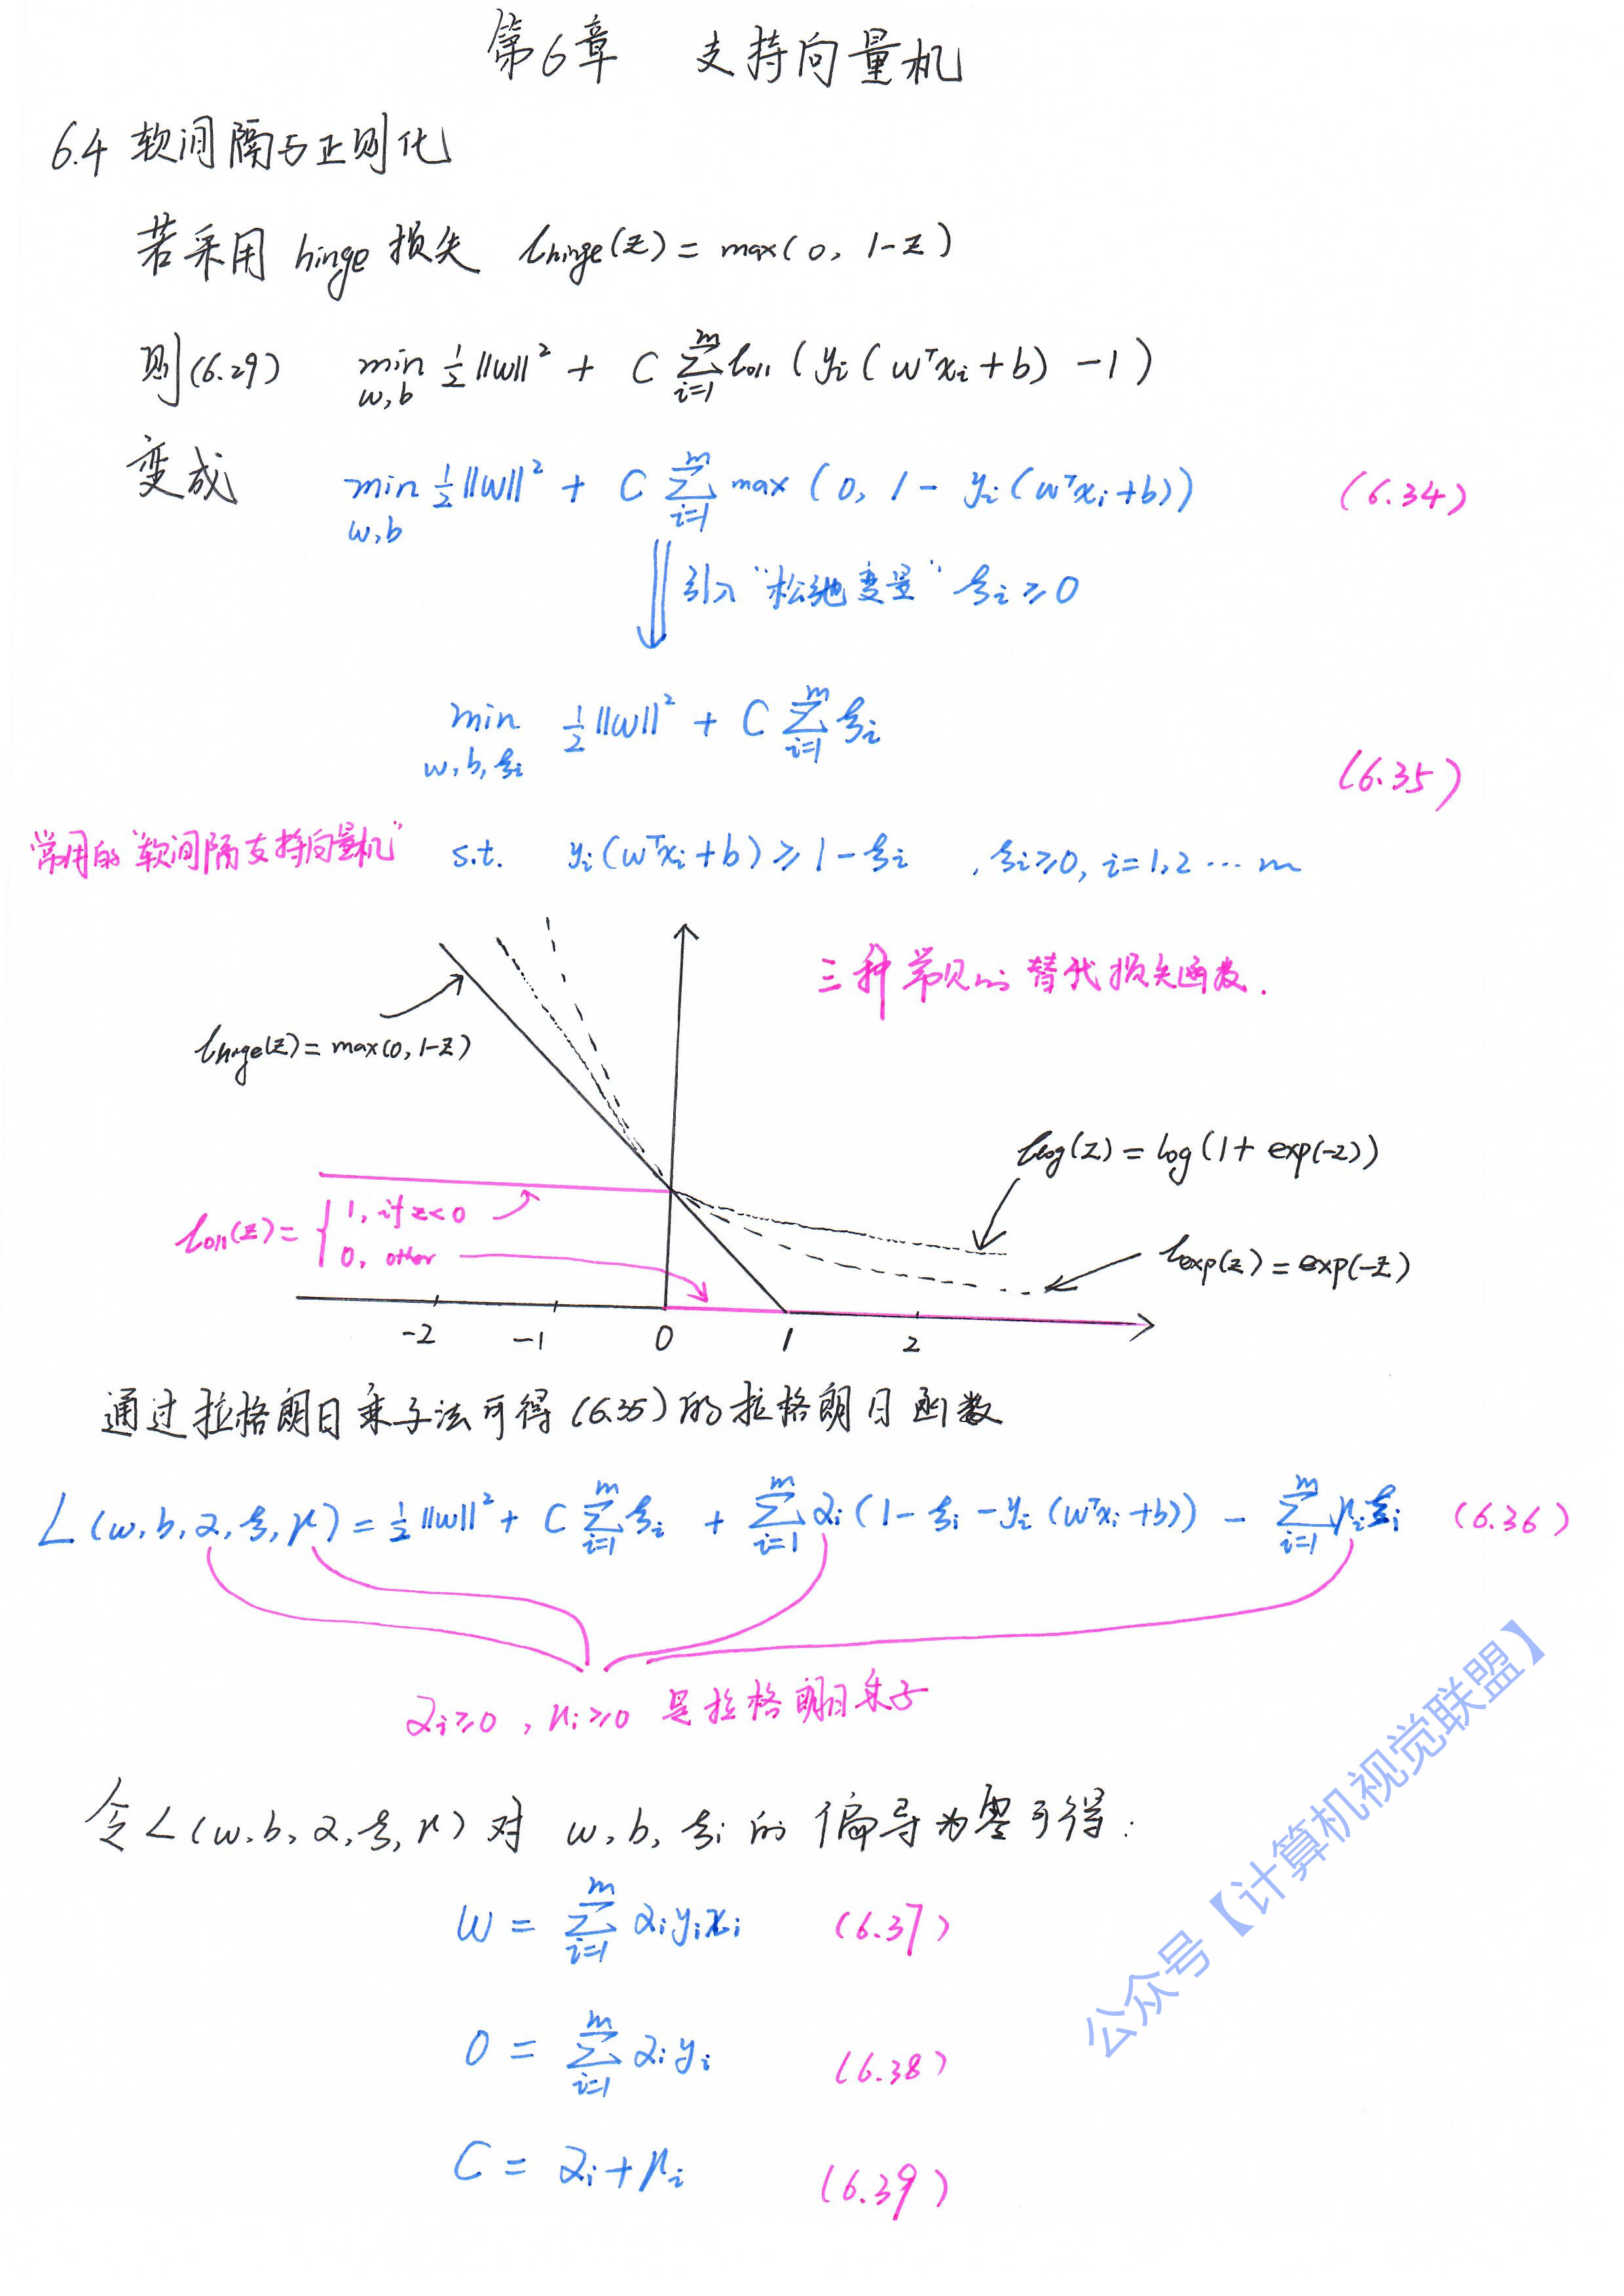 第6章 支持向量机
6.4 软间隔与正则化
若采用 hinge 损失 ℓhinge(z) = max(0, 1-z)
则(6.29) min w,b ½||w||² + C Σ_{i=1}^m ℓ0/1 (yi(wᵀxi+b) -1)
变成 min w,b ½||w||² + C Σ_{i=1}^m max (0, 1- yi(wᵀxi+b)) (6.34)
引入"松弛变量" ξi ≥ 0
min w,b,ξi ½||w||² + C Σ_{i=1}^m ξi
(6.35)
常用的"软间隔支持向量机" s.t. yi(wᵀxi+b) ≥ 1-ξi , ξi ≥ 0, i=1,2 … m
三种常见的替代损失函数.
ℓhinge(z) = max(0, 1-z)
ℓlog(z) = log(1+ exp(-z))
ℓ0/1(z) = { 1, if z<0
0, other
ℓexp(z) = exp(-z)
-2 -1 0 1 2
通过拉格朗日乘子法可得(6.35)的拉格朗日函数
L(w,b,α,ξ,μ) = ½||w||² + C Σ_{i=1}^m ξi + Σ_{i=1}^m αi(1-ξi-yi(wᵀxi+b)) - Σ_{i=1}^m μiξi (6.36)
αi≥0, μi≥0 是拉格朗日乘子
令L(w,b,α,ξ,μ)对 w,b,ξi的偏导为零可得:
w = Σ_{i=1}^m αiyixi (6.37)
0 = Σ_{i=1}^m αiyi (6.38)
C = αi+μi (6.39)
公众号【计算机视觉联盟】